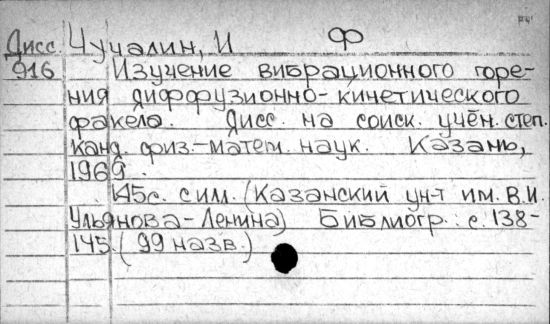 Дисс. Чучалин, И Ф
916 Изучение вибрационного горе-
ния диффузионно-кинетического
факела. Дисс. на соиск. учён. степ.
канд. физ.-матем. наук. Казань,
1969.
145с. с илл. (Казанский ун-т им. В.И.
Ульянова-Ленина) Библиогр.: с. 138-
145. (99 назв.)